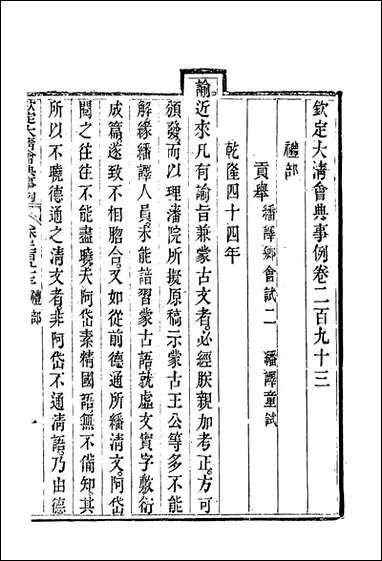 欽定大清會典事例卷二百九十三
禮部
貢舉 繙譯鄉會試二 繙譯童試
乾隆四十四年
諭近來凡有諭旨兼蒙古文者必經朕親加考正方可
頒發而以理藩院所擬原稿示蒙古王公等多不能
解緣繙譯人員未能諳習蒙古語就虛文實字敷衍
成篇遂致不相脗合又如從前德通所繙清文阿岱
閱之往往不能盡曉夫阿岱素精國語無不備知其
所以不曉德通之清文者非阿岱不通清語乃由德
欽定大清會典事例 禮部